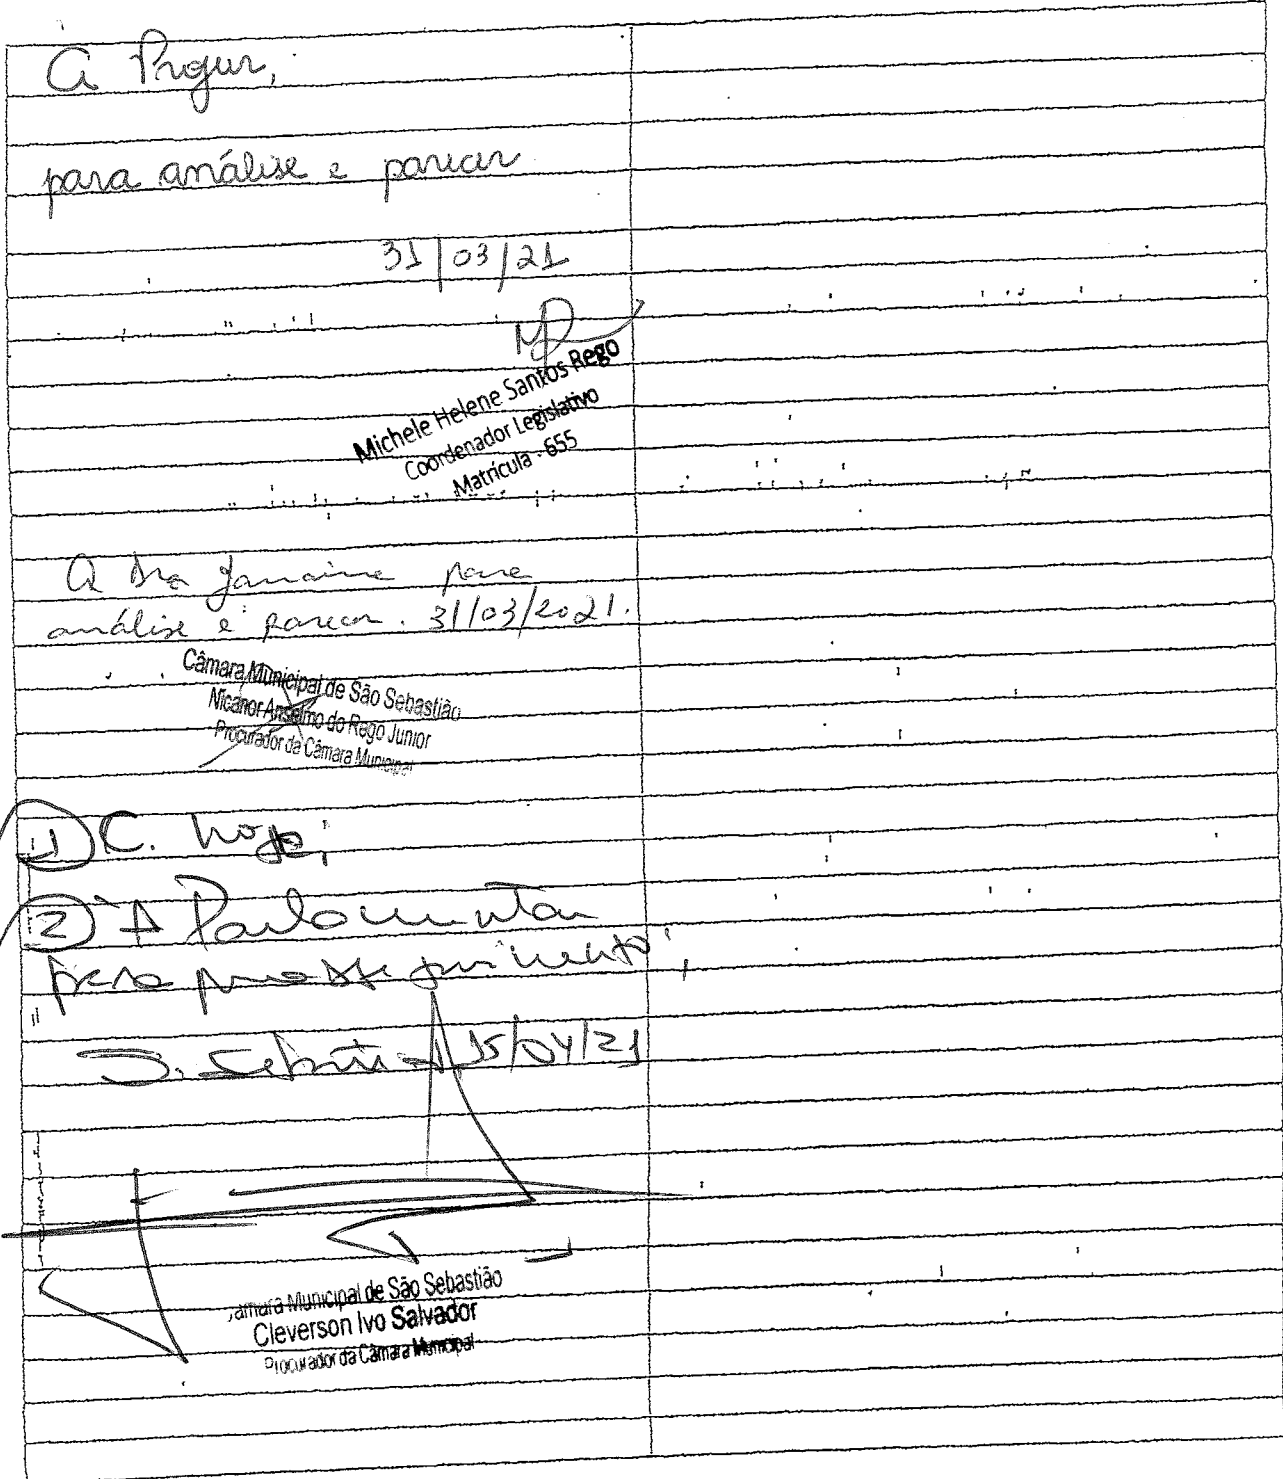 A Progur,
para análise e parecer
31/03/21
Michele Helene Santos Rego
Coordenador Legislativo
Matrícula - 655
A Dra Janaina para
análise e parecer. 31/03/2021.
Câmara Municipal de São Sebastião
Nicanor Anselmo do Rego Junior
Procurador da Câmara Municipal
1 C. hoje;
2 À Parlamentar
para prosseguimento;
S. Sebastião 15/04/21
Câmara Municipal de São Sebastião
Cleverson Ivo Salvador
Procurador da Câmara Municipal